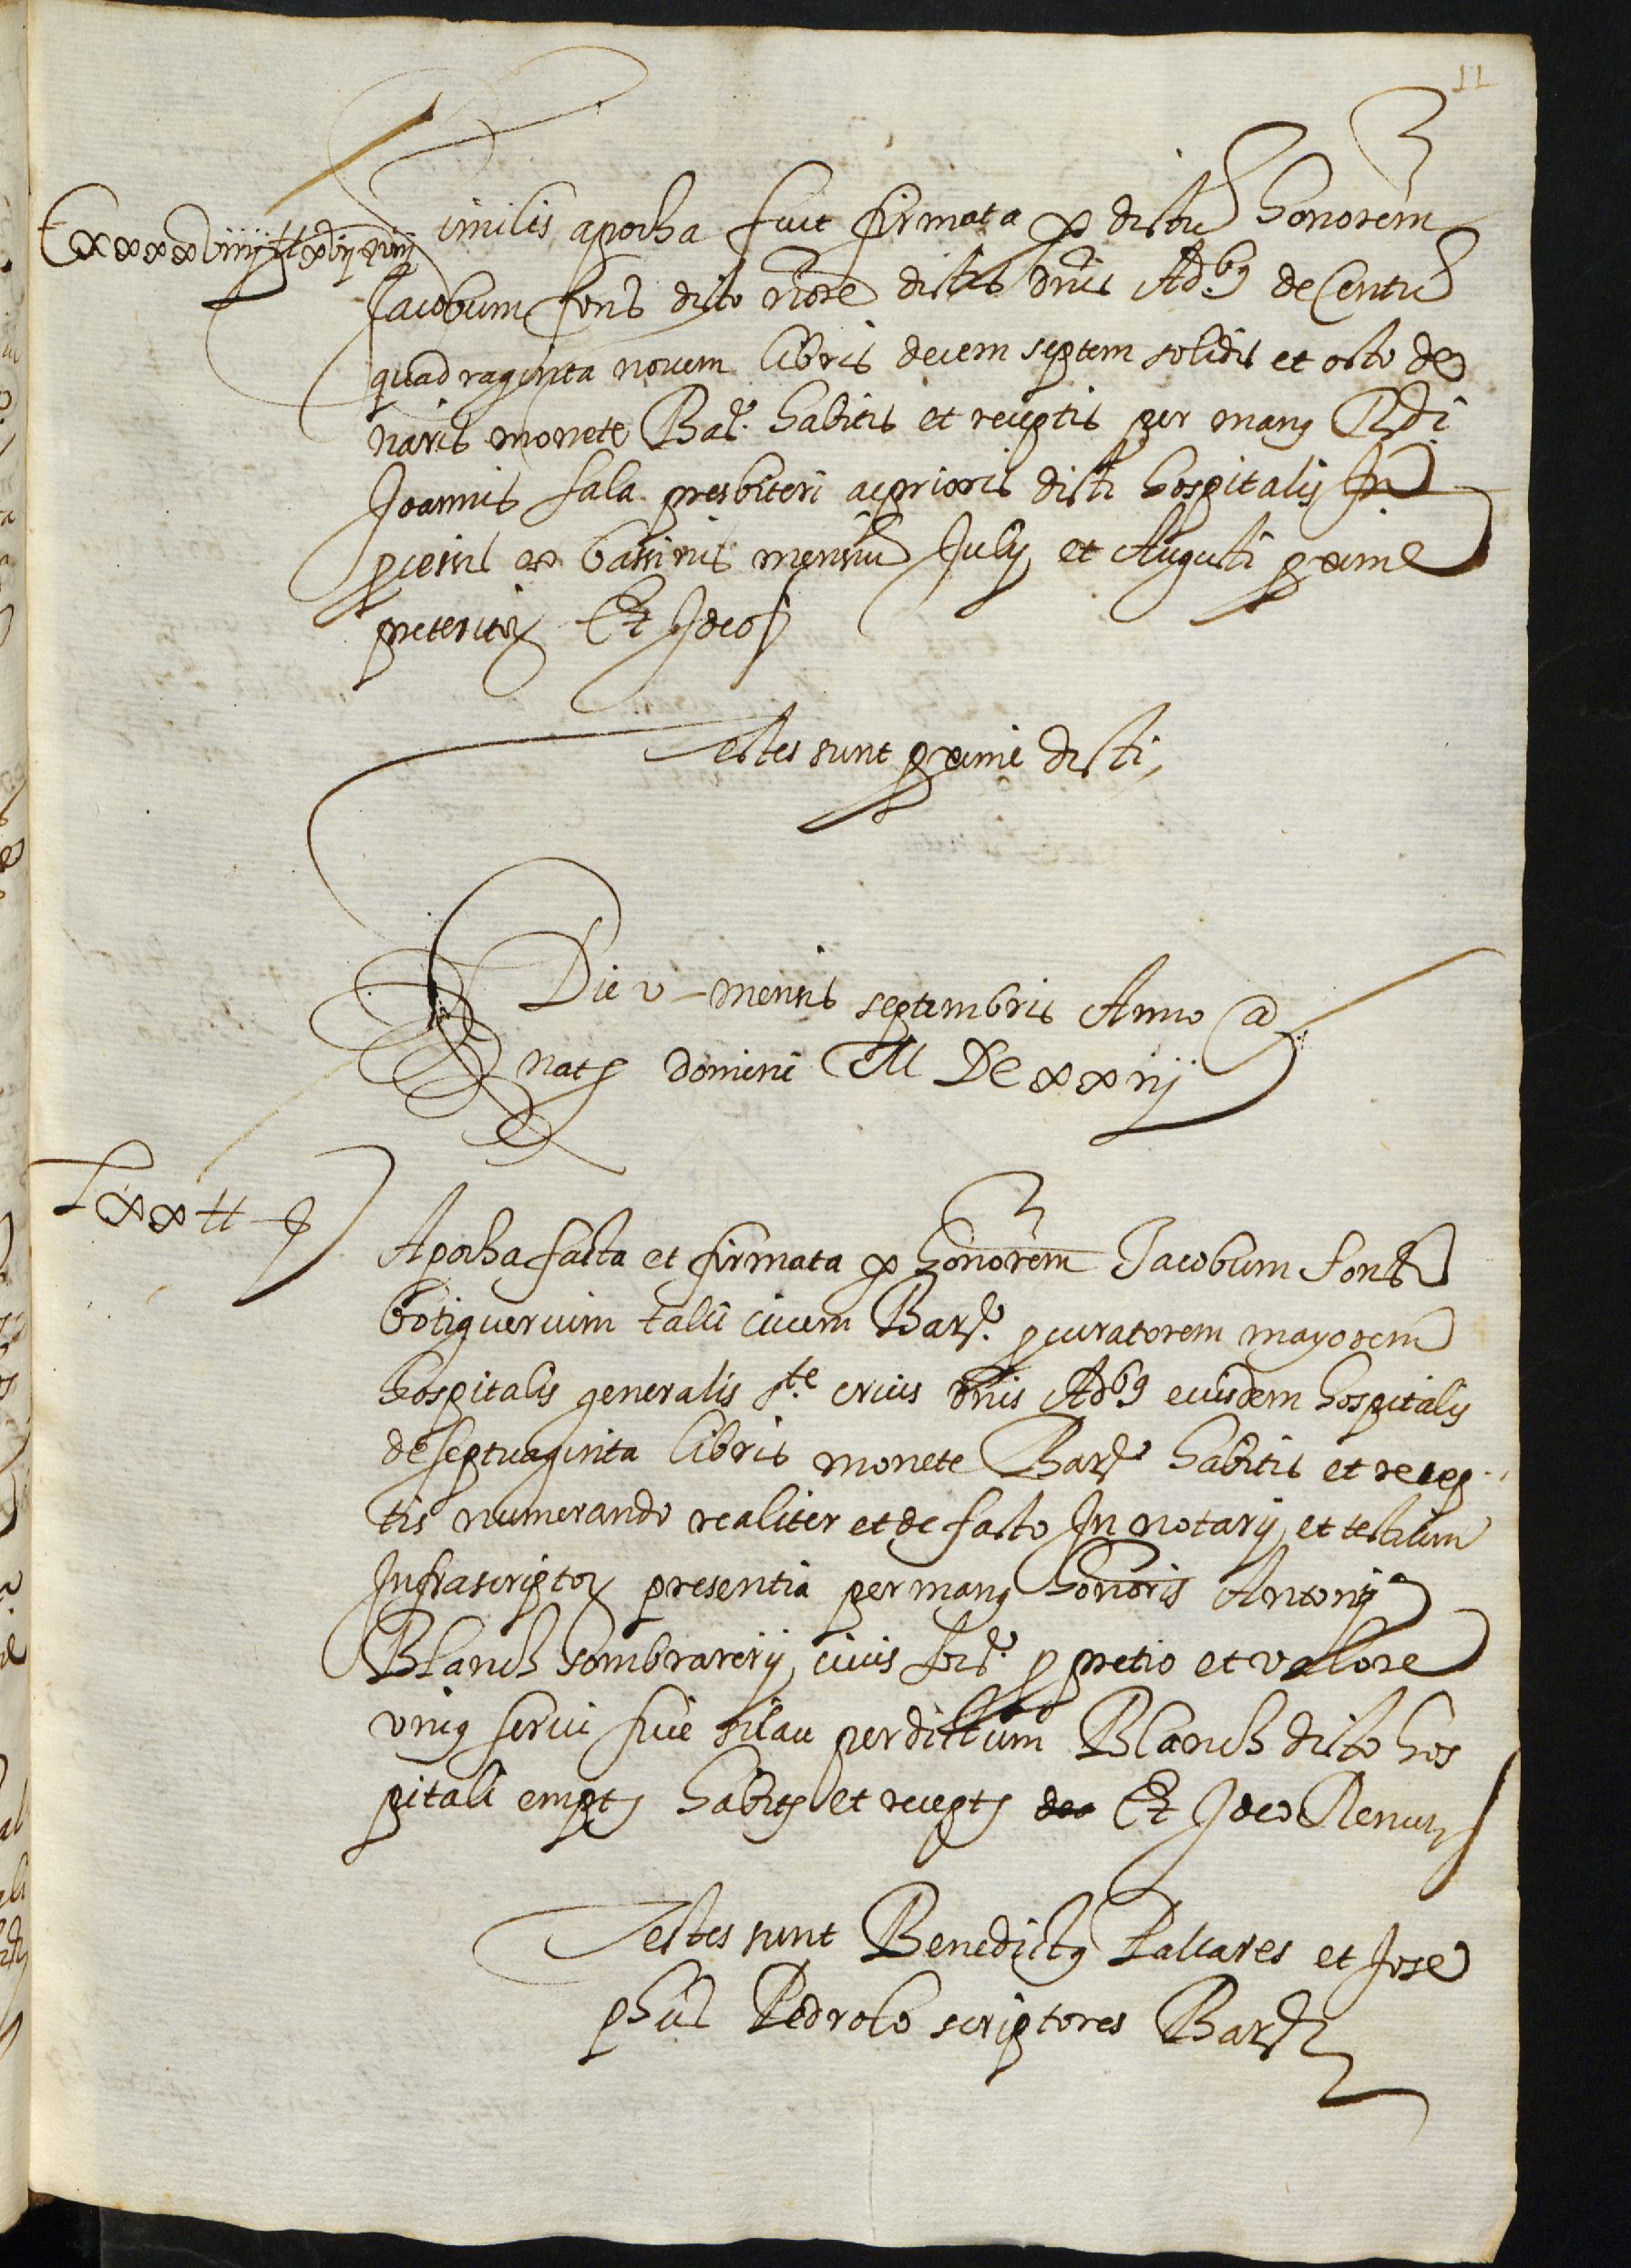 11
Cxxxxviiij tt xvij s viij
Similis apocha fuit firmata p dictu honorem
Jacobum fons dicto noĩe dictis dnis Adbꝰ de Centu
quadraginta novem libris decem septem solidis et octo de
nariis monete Bar. habitis et receptis per manꝰ Rdi
Joannis Sala presbiteri ac prioris dicti hospitalis
pcessis ex bassinis mensiu July et Augusti pxime
preteritoꝝ Et Ideo
Testes sunt pxime dicti,
Die v mensis septembris Anno a
natē domini M DC xxiij
Lxx tt
Apocha facta et firmata p honorem Jacobum fons
botiguerium talii civem Barᵉ. pcuratorem mayorem
hospitalis generalis Ste crucis dnis Adbꝰ eiusdem hospitalis
de septuaginta libris monete Barᵉ habitis et recep
tis numerando realiter et de facto In notarij et testium
Infrascriptoꝝ presentia per manꝰ honoris Antonij
Blanch sombrarerij civis p pretio et valore
vniꝰ servi sive sclau per dictum Blanch dicto hos
pitali empt habit et recept Et Ideo Renun
Testes sunt Benedictꝰ Pallares et Jose
phus Pedrolo scriptores Bar